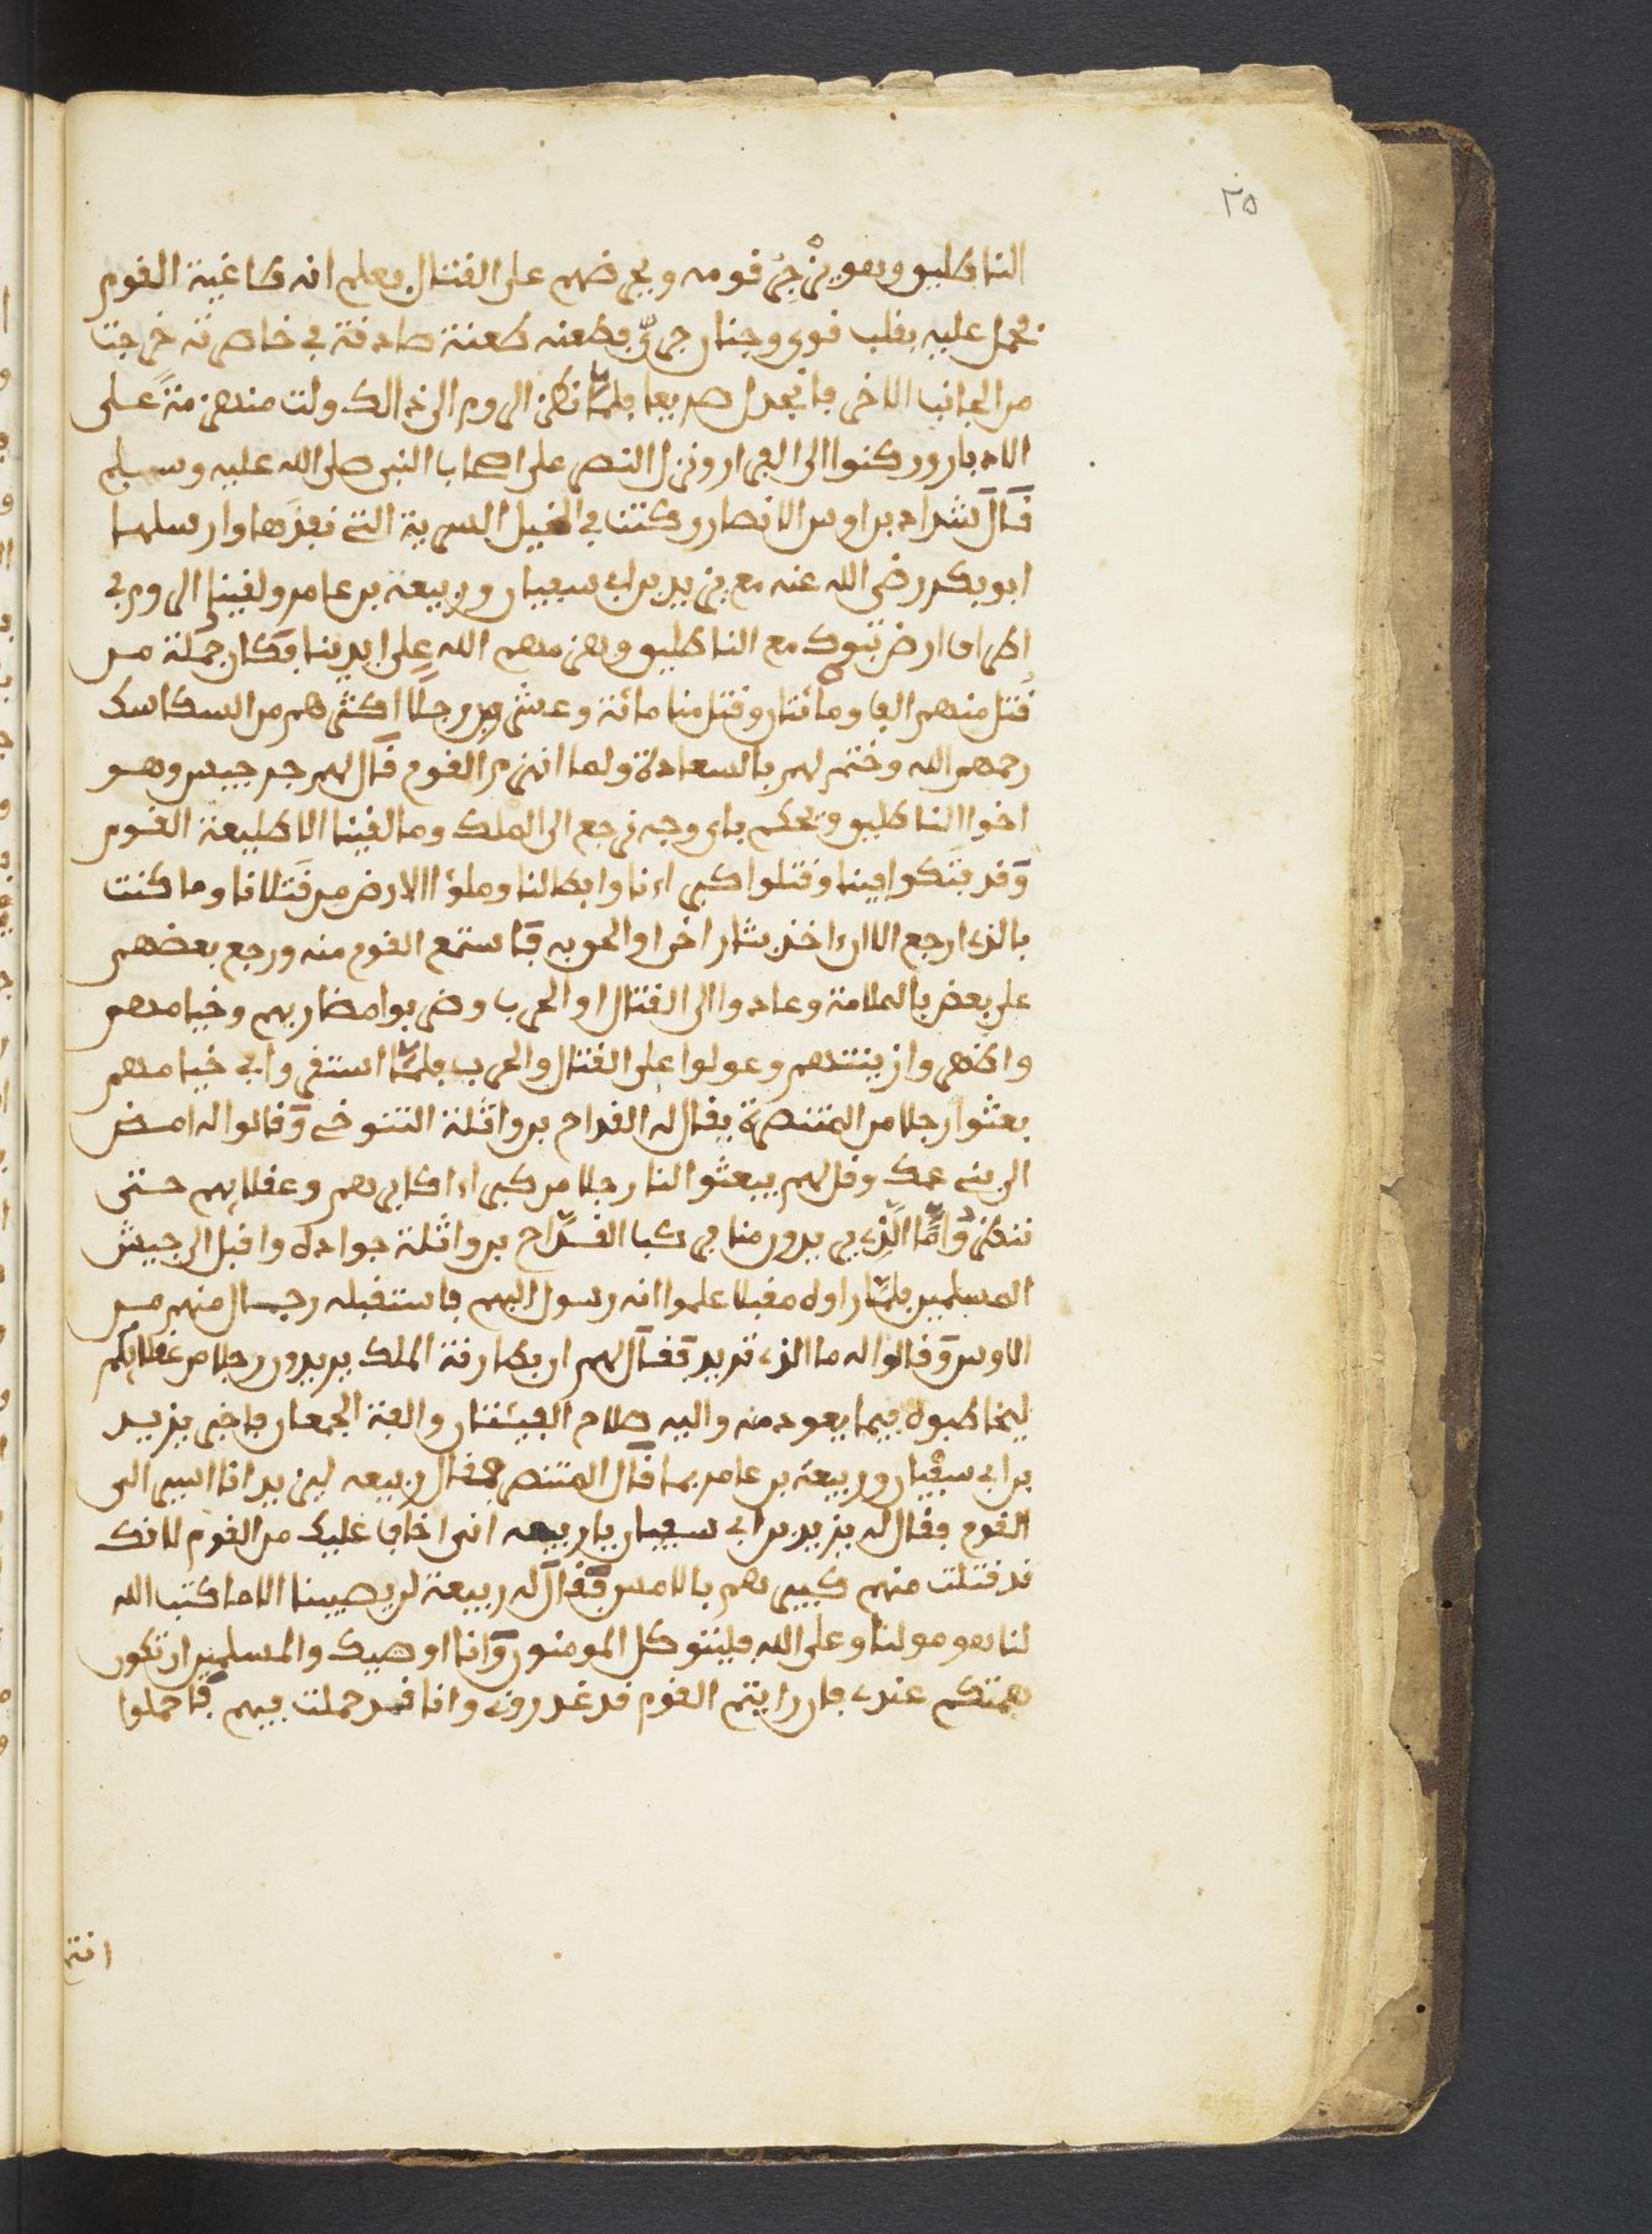 ٢٥
الناطليق وهو يزجر قومه ويحرضهم على القتال فعلم انه طاغية القوم
فحمل عليه بقلب قوي وجنان جري فطعنه طعنة صادقة في خاصرته خرجت
من الجانب الاخر فانجدل صريعا فلما نظر الروم الى ذالك ولت منهزمة على
الادبار وركنوا الى الفرار ونزل النصر على اصحاب النبي صلى الله عليه وسلم
قال شداد بن اوس الانصار وكنت في الخيل السرية التي نفذها وارسلها
ابو بكر رضي الله عنه مع يزيد بن ابي سفيان وربيعة بن عامر ولقينا الروم في
اطراف ارض تبوك مع الناطليق وهزمهم الله على ايدينا فكان جملة من
قتل منهم الفا ومائتان وقتل منا مائة وعشرين رجلا اكثرهم من السكاسك
رحمهم الله وختم لهم بالسعادة ولما انهزم القوم قال لهم جرجيس وهو
اخوا الناطليق ويحكم باي وجه نرجع الى الملك وما لقينا الا طليعة القوم
وقد فتكوا فينا وقتلوا كبراءنا وابطالنا وملؤا الارض من قتلانا وما كنت
بالذي ارجع الا ان ءاخذ بثار اخي او الحق به فاستمع القوم منه ورجع بعضهم
على بعض بالملامة وعادوا الى القتال والحرب وضربوا مضاربهم وخيامهم
واظهروا زينتهم وعولوا على القتال والحرب فلما استقروا في خيامهم
بعثوا رجلا من المتنصرة يقال له القداح بن واثلة التنوخي وقالوا له امض
الى بني عمك وقل لهم يبعثوا لنا رجلا من كبراء اكابرهم وعقلائهم حتى
ننظر واما الذي يريدون منا فركب القداح بن واثلة جواده واقبل الى جيش
المسلمين فلما راوه مقبلا علموا انه رسول اليهم فاستقبله رجال منهم من
الاوس وقالوا له ما الذي تريد فقال لهم ان بطارقة الملك يريدون رجلا من عقلائكم
ليخاطبوه فيما يعود منه واليه صلاح الفيئتان والفة الجمعان فاخبر يزيد
بن ابي سفيان وربيعة بن عامر بما قال المتنصر فقال ربيعه ليزيد انا اسير الى
القوم فقال له يزيد بن ابي سفيان يا ربيعه اني اخاف عليك من القوم لانك
قد قتلت منهم كبيرهم بالامس فقال له ربيعة لن يصيبنا الا ما كتب الله
لنا هو مولنا وعلى الله فليتوكل المومنون وانا اوصيك والمسلمين ان تكون
همتكم عندي فان رايتم القوم قد غدروني وانا قد حملت فيهم فاحملوا
انتم